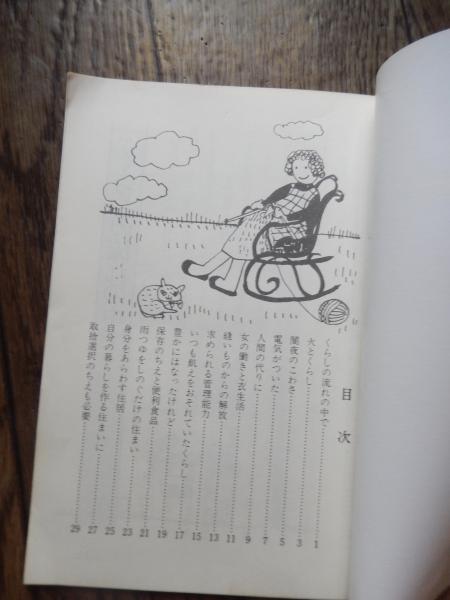 目次
くらしの流れの中で………1
火とくらし………3
闇夜のこわさ………5
電気がついた………7
人間の代りに………9
女の働きと衣生活………11
縫いものからの解放………13
求められる管理能力………15
いつも飢えをおそれていたくらし………17
豊かにはなったけれど………19
保存のちえと便利食品………21
雨つゆをしのぐだけの住まい………23
身分をあらわす住居………25
自分の暮らしを作る住まいに………27
取捨選択のちえも必要………29